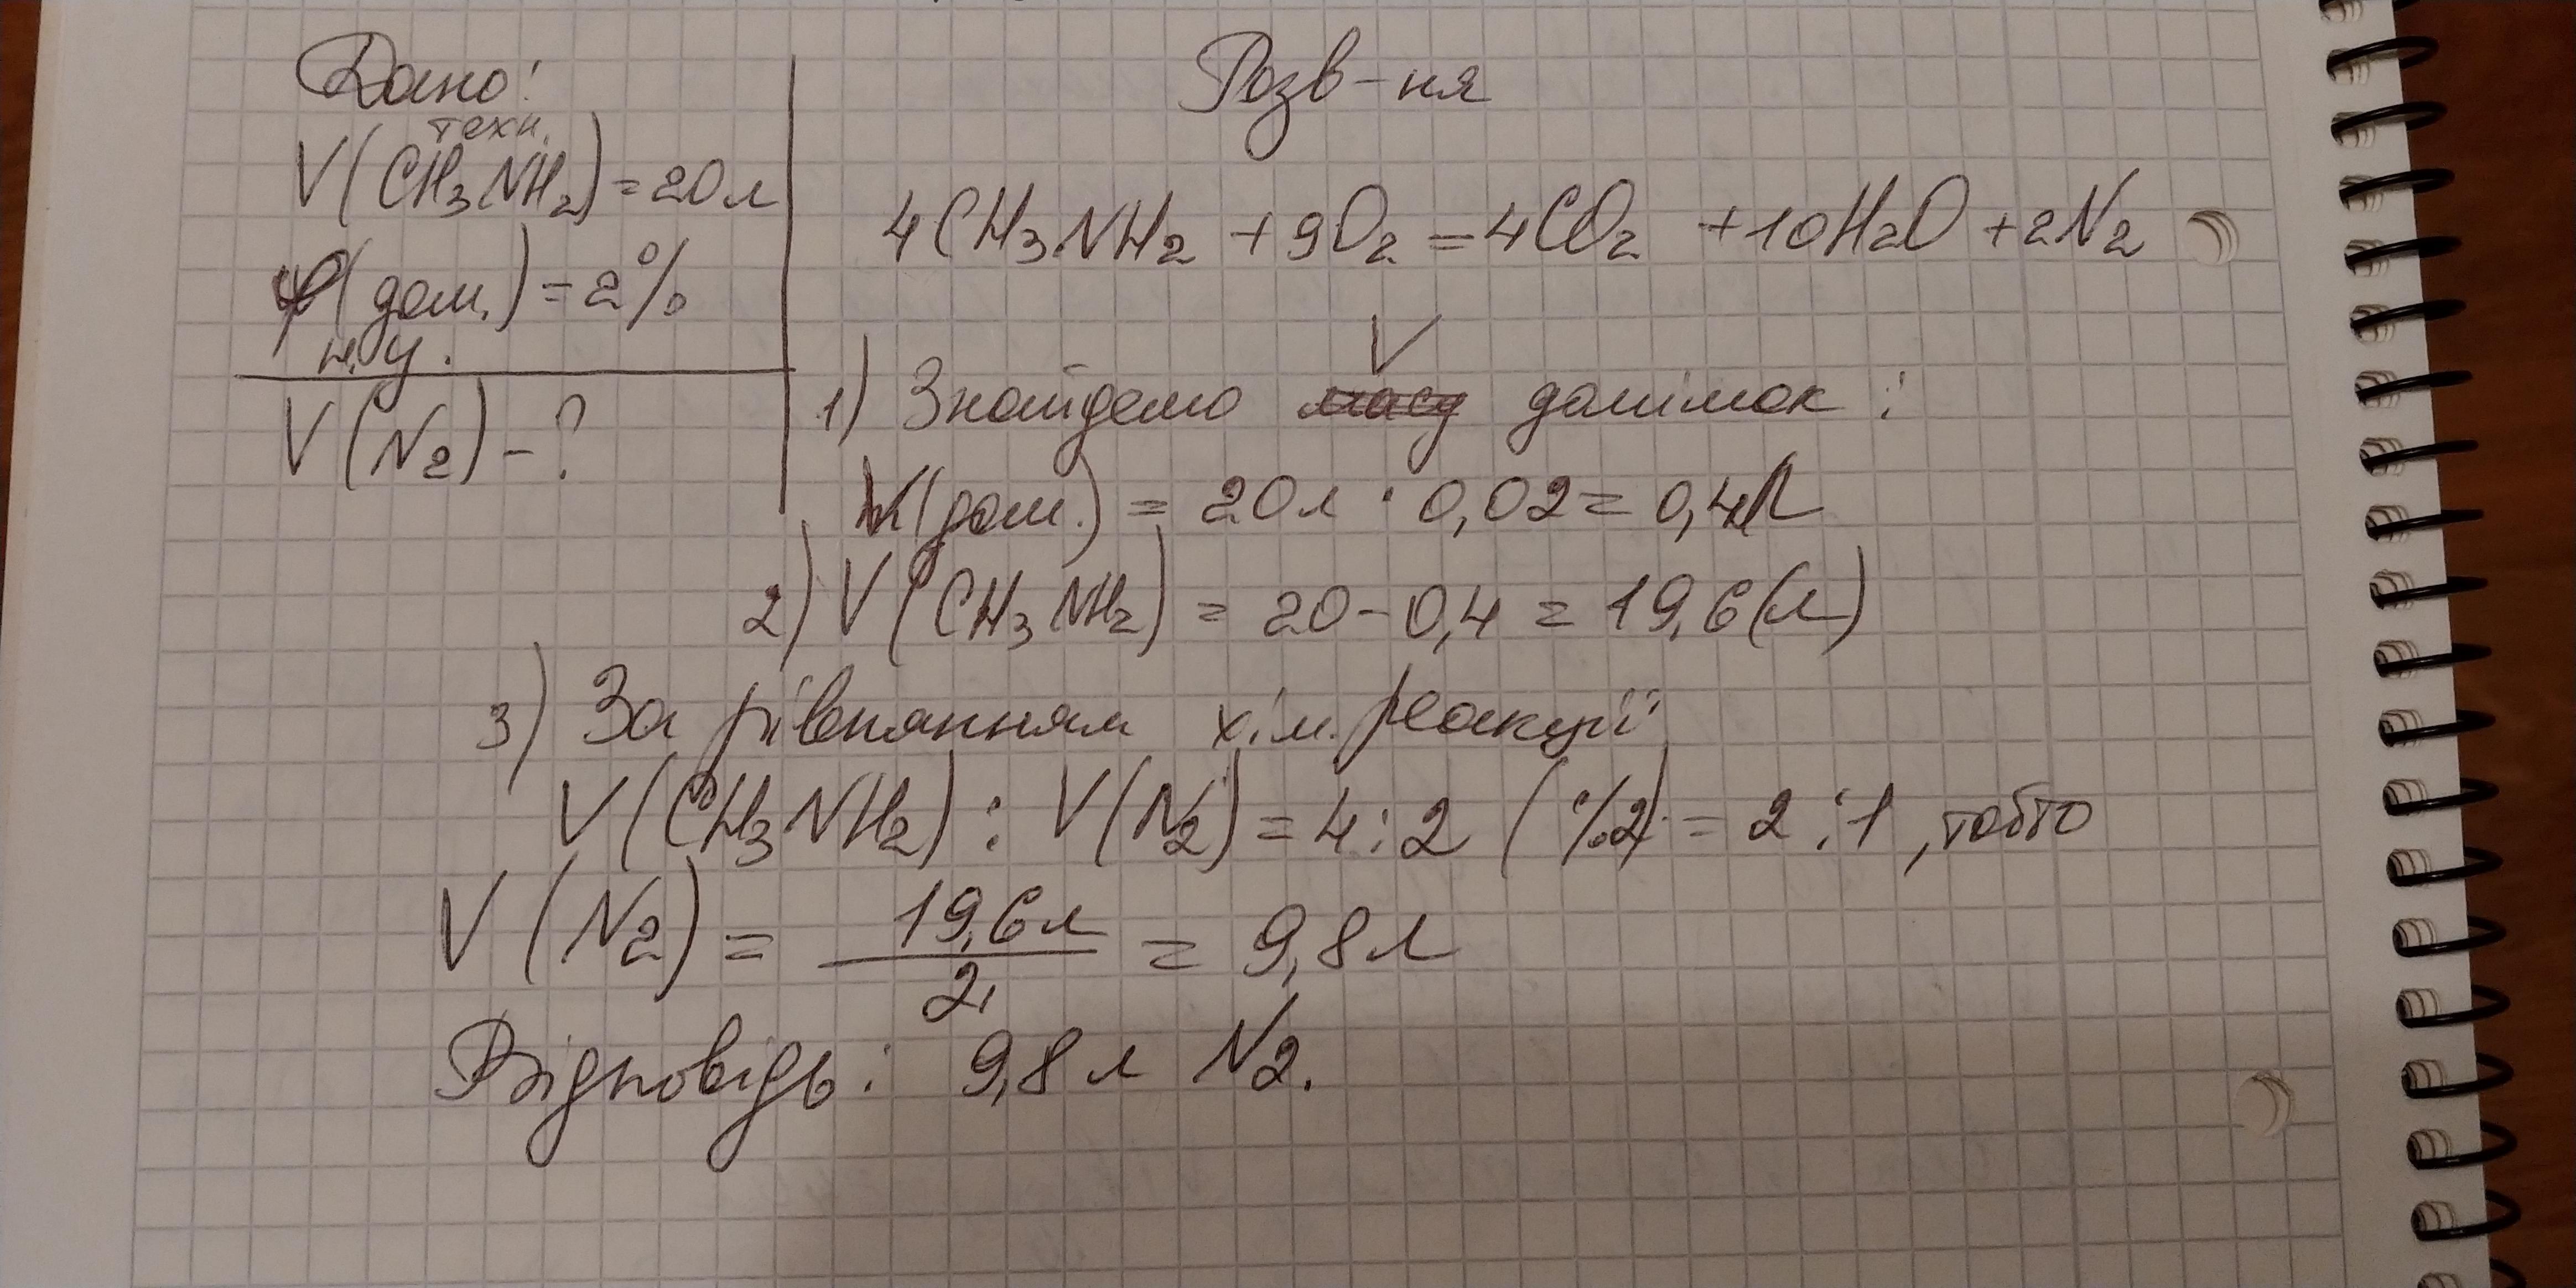 Дано:
техн.
V(CH₃NH₂) = 20 л
φ(дом.) = 2%
н.у.
V(N₂) - ?
Розв-ня
4CH₃NH₂ + 9O₂ = 4CO₂ + 10H₂O + 2N₂
V
1) Знайдемо масу домішок:
V(дом.) = 20 л · 0,02 = 0,4 л
2) V(CH₃NH₂) = 20 - 0,4 = 19,6 (л)
3) За рівнянням хім. реакції
V(CH₃NH₂) : V(N₂) = 4 : 2 (%2) = 2 : 1, тобто
V(N₂) = 19,6 л / 2 = 9,8 л
Відповідь: 9,8 л N₂.